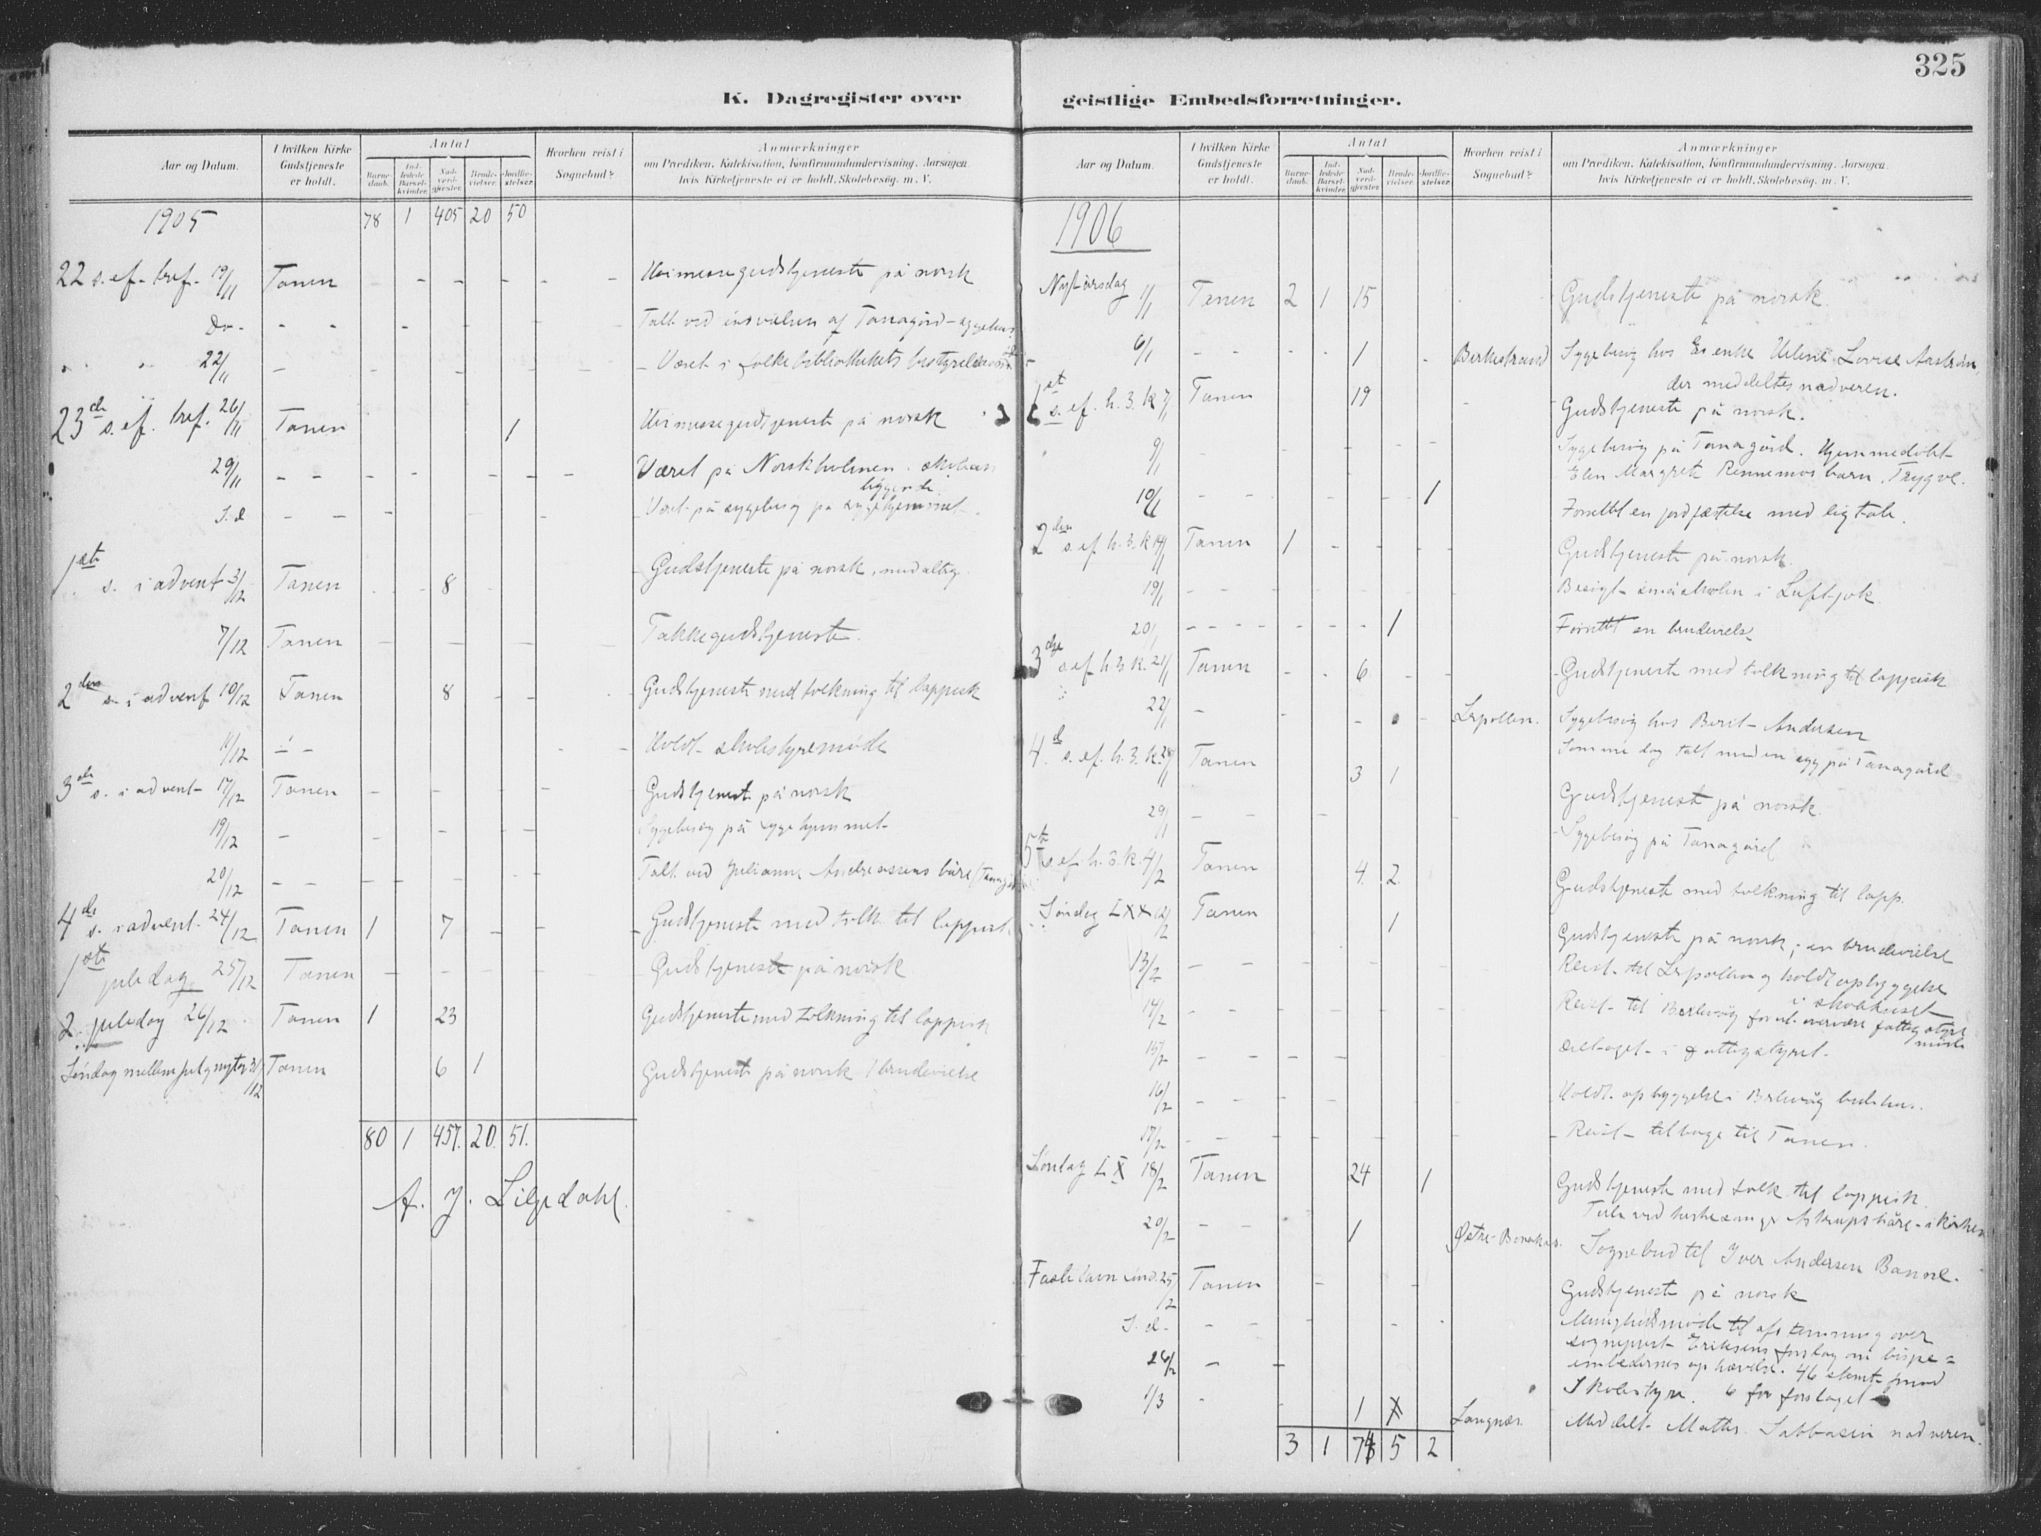 325
K. Dagregister over geistlige Embedsforretninger.
Aar og Datum. I hvilken Kirke Gudstjeneste er holdt. Antal Barnedaab. Indledede Barselkvinder. Nadverdgjester. Brudevielser. Jordfæstelser. Hvorhen reist i Sognebud? Anmærkninger om Prædiken, Katekisation, Konfirmandundervisning, Aarsagen hvis Kirketjeneste ei er holdt, Skolebesøg. m. V.
1905 78 1 405 20 50
22 s. ef. tref. 19/11 Tanen Høimessegudstjeneste på norsk
Do - Talt ved indvielsen af Tanagård
22/11 - Været i folkebibliothekets bestyrelse
23de s. ef. tref. 26/11 Tanen 1 Høimessegudtjeneste på norsk
29/11 Været på Norskholmen i skolen
S.d. Været på sygebesøg på sygehjemmet
1ste s. i advent 3/12 Tanen 8 Gudstjeneste på norsk
7/12 Tanen Takkegudstjeneste.
2den s. i advent 10/12 Tanen 8 Gudstjeneste med tolkning til lappisk
11/12 Holdt skolestyremøde
3de s. i advent 17/12 Tanen Gudstjenest på norsk
19/12 - Sygebesøg på sygehjemmet
20/12 Talt ved Julianne Andreassens båre
4de s. i advent. 24/12 Tanen 1 7 Gudstjeneste med tolk. til lappisk
1ste juledag 25/12 Tanen Gudstjeneste på norsk
2. juledag 26/12 Tanen 1 23 Gudstjeneste med tolkning til lappisk
Søndag mellem jul og nytår 31/12 Tanen 6 1 Gudstjenest på norsk 1 brudevielse
80 1 457. 20. 51.
A. J. Liljedahl.
Aar og Datum. I hvilken Kirke Gudstjeneste er holdt. Antal Barnedaab. Indledede Barselkvinder. Nadverdgjester. Brudevielser. Jordfæstelser. Hvorhen reist i Sognebud? Anmærkninger om Prædiken, Katekisation, Konfirmandundervisning, Aarsagen hvis Kirketjeneste ei er holdt, Skolebesøg. m. V.
1906
Nytårsdag 1/1 Tanen 2 1 15 Gudstjeneste på norsk.
6/1 1 Birkestrand Sygebesøg hos enke Lovise
der meddeltes nadveren.
1st s. ef. h. 3. k. 7/1 Tanen 19 Gudstjeneste på norsk.
9/1 Sygebesøg på Tanagård. Hjemmedøbt
Elen Margrete Rennemos barn, Trygve.
10/1 1 Forrettet en jordfæstelse med ligtale.
2den s. ef. h. 3. k 14/1 Tanen 1 Gudstjeneste på norsk.
19/1 Besøgt småskolen i Luftjok
20/1 1 Forrettet en brudevielse
3die s. ef. h. 3. k. 21/1 Tanen 6 Gudstjeneste med tolkning til lappisk
22/1 Lepollen. Sygebesøg hos Berit Andersen
Samme dag talt med en syg på Tanagård
4de s. ef. h. 3. k. 28/1 Tanen 3 1 Gudstjeneste på norsk.
29/1 Sygebesøg på Tanagård
5te s. ef. h. 3. k. 4/2 Tanen 4. 2 Gudstjeneste med tolkning til lapp.
Søndag LXX 12/2 Tanen 1 Gudstjeneste på norsk; en brudevielse
13/2 Reist til Lepollen og holdt opbyggelse
i skolehuset
14/2 Reist til Berlevåg for at overvære fattigstyre
møde
15/2 deltaget i fattigstyret
16/2 Holdt opbyggelse i Berlevåg bedehus.
17/2 Reist tilbage til Tanen.
Søndag LX 18/2 Tanen 24 1 Gudstjeneste med tolk til lappisk
Tale ved Astrups båre i kirken
20/2 1 Østre Sognebud til Iver Andersen Banne.
Fastelavn sønd. 25/2 Tanen Gudstjeneste på norsk
S. d. Menighedsmøde til afstemning over
sogneprest Eriksens forslag om bispe=
embedernes ophævelse. 46 stemt imod
26/2 - Skolestyre. 6 for forslaget
1/3 1 Langnes. Meddelt Mathis nadveren.
3 1 74 5 2